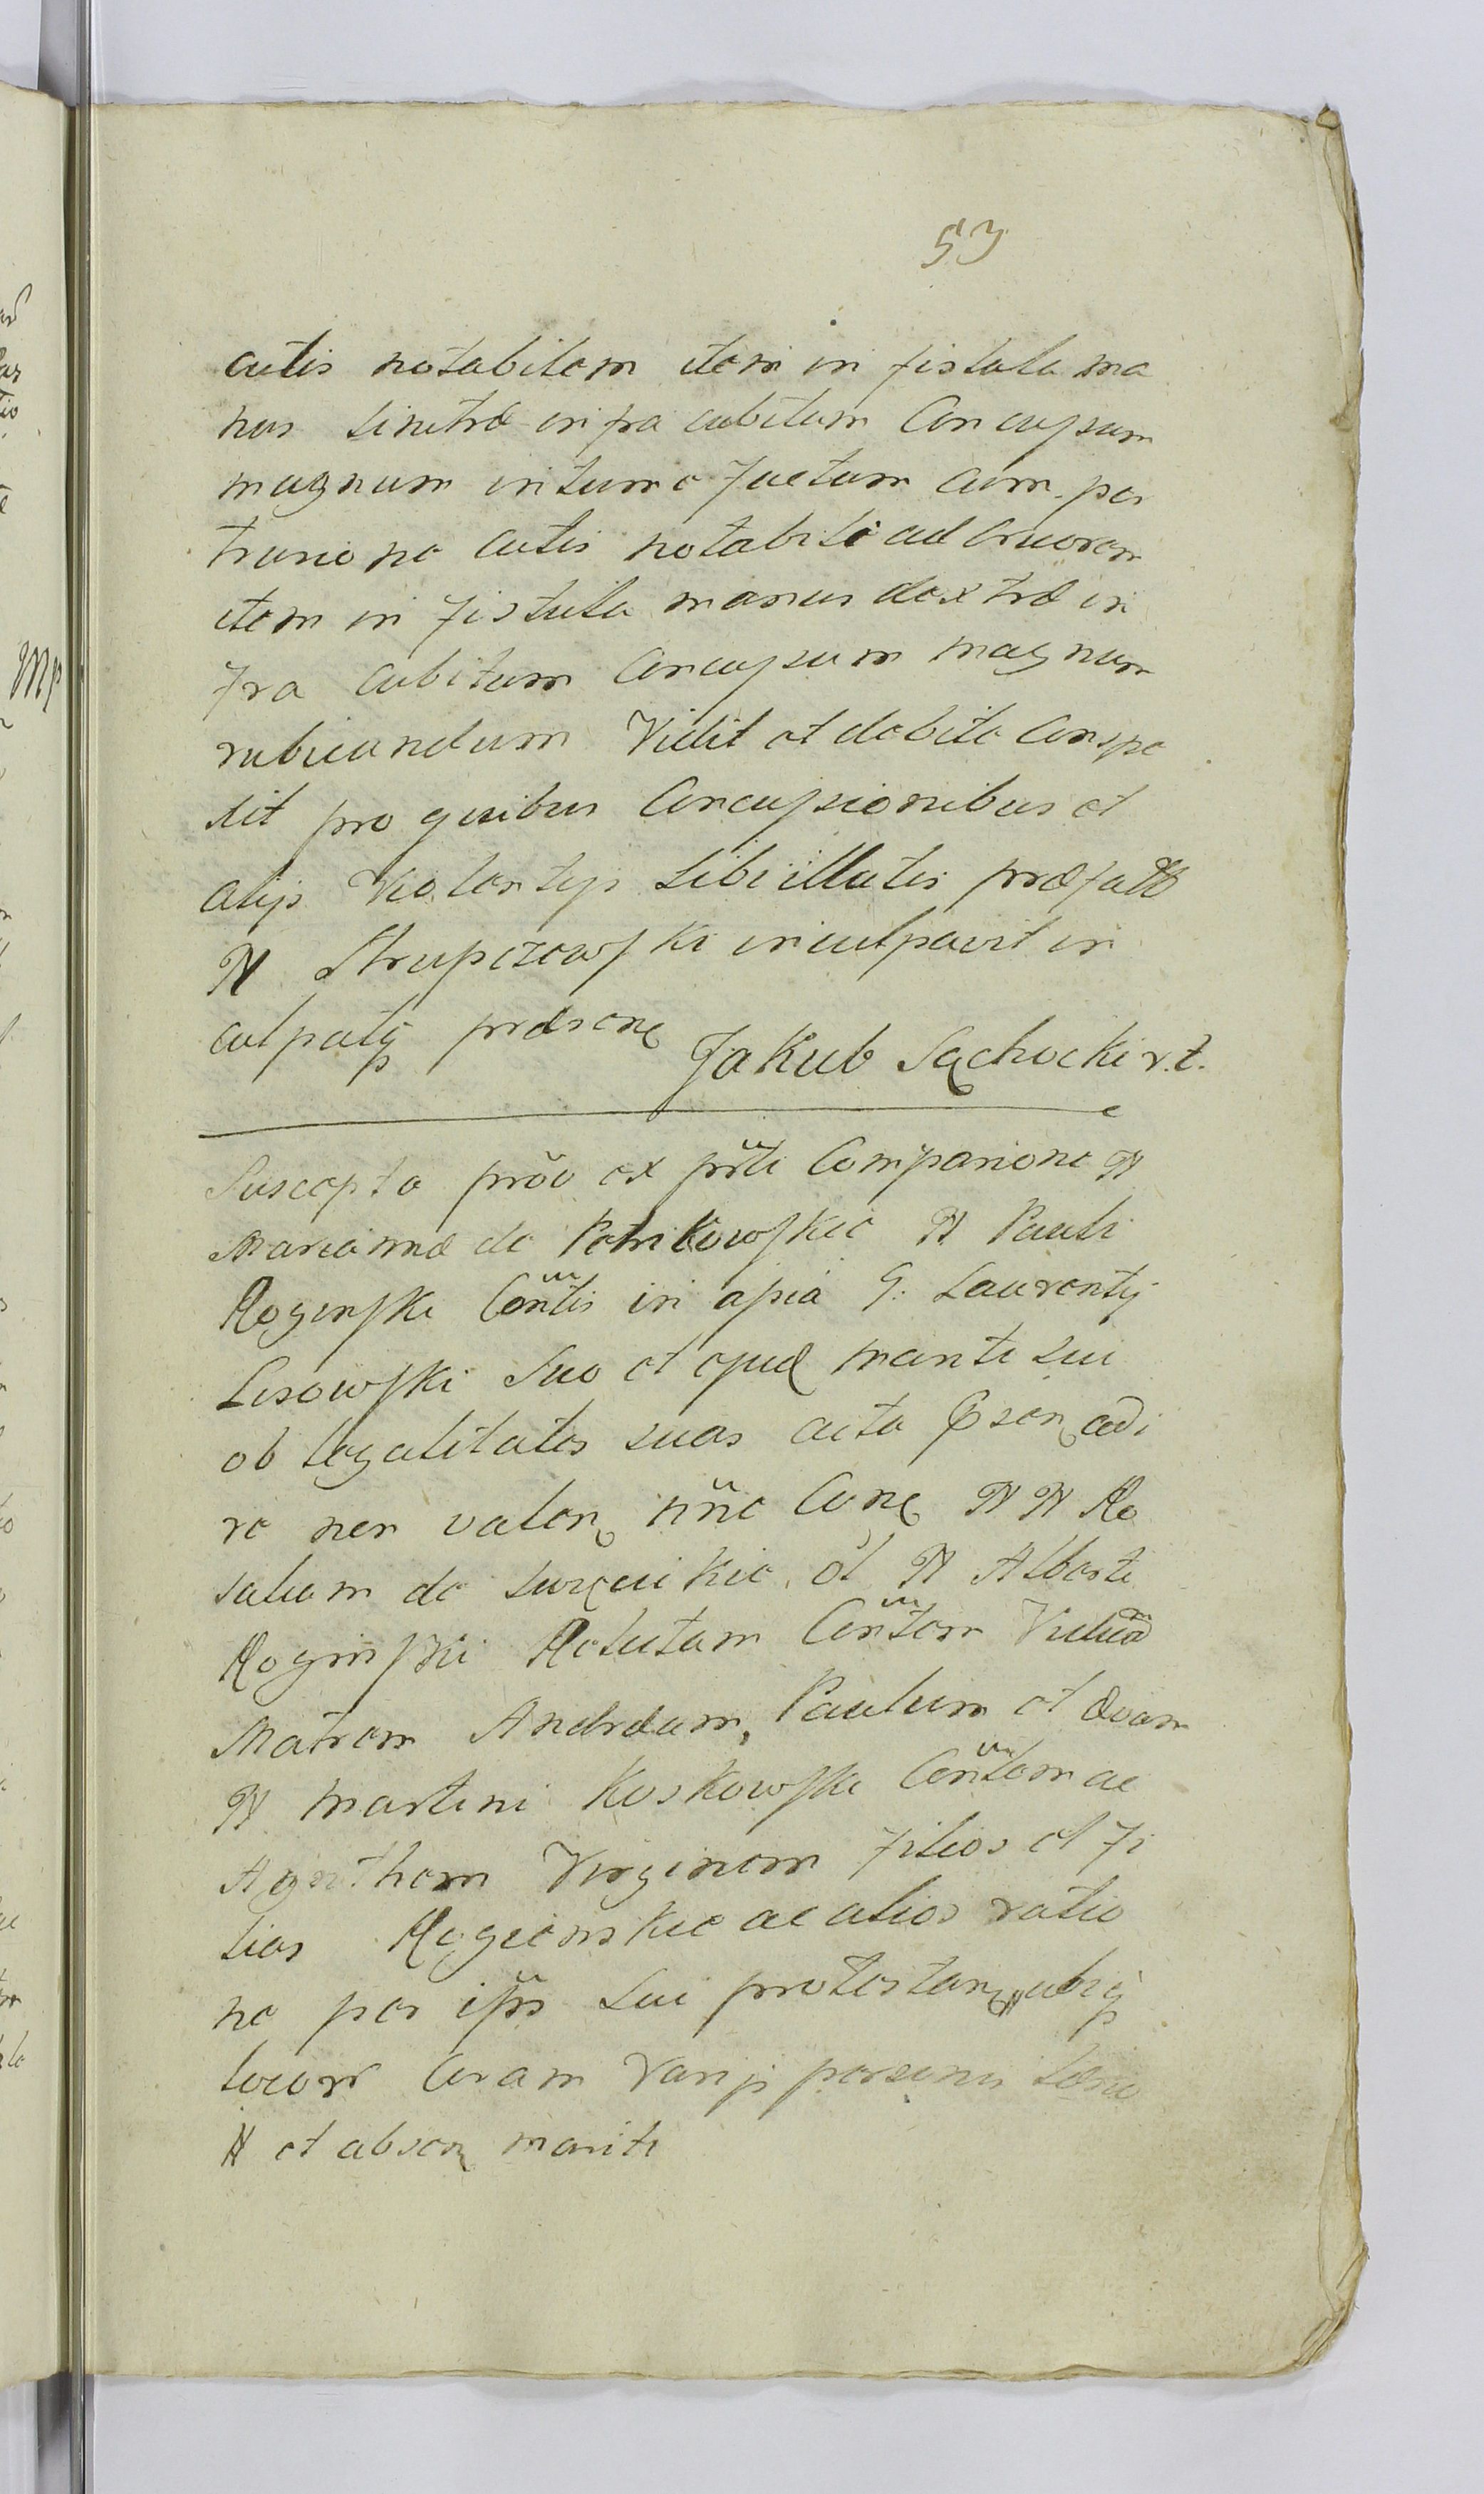 53
cutis notabilem item in fistula ma
nus sinitræ infra cubitum Concussum
magnum intume factum cum per
trusione cutis notabili ad cruorem
item in fistula manus dextræ in
fra cubitum Concussum magnum
rubicundum Vidit et debite Conspe
xit pro quibus Concussionibus et
alijs Violentijs sibi illatis præfatt
N Strupczewski inculpavit in
culpatq præsenę
Jakub Sąchocki r.t.
Suscepta prõv ex pñti Comparione N
Mariannæ de Petrikowskie N Pauli
Roginski Cõntis in aſsia G: Laurentij
Lisowski Suo et ejusd mariti sui
ob legalitates suas acta Psen adi
re nen valen nñe Conę N N Ro
saliam de surynikie ol N Alberti
Roginski Relictam Cõntem Viduã
Matrem Andream, Paulum et Evam
N Martini Koskowski Cõntem ac
Agatham Virginem filios et fi
lias Rogienskie ac alios ratio
ne per ipõs sui protestanę ubiq
locorr Coram Varijs personis
N et absen mariti